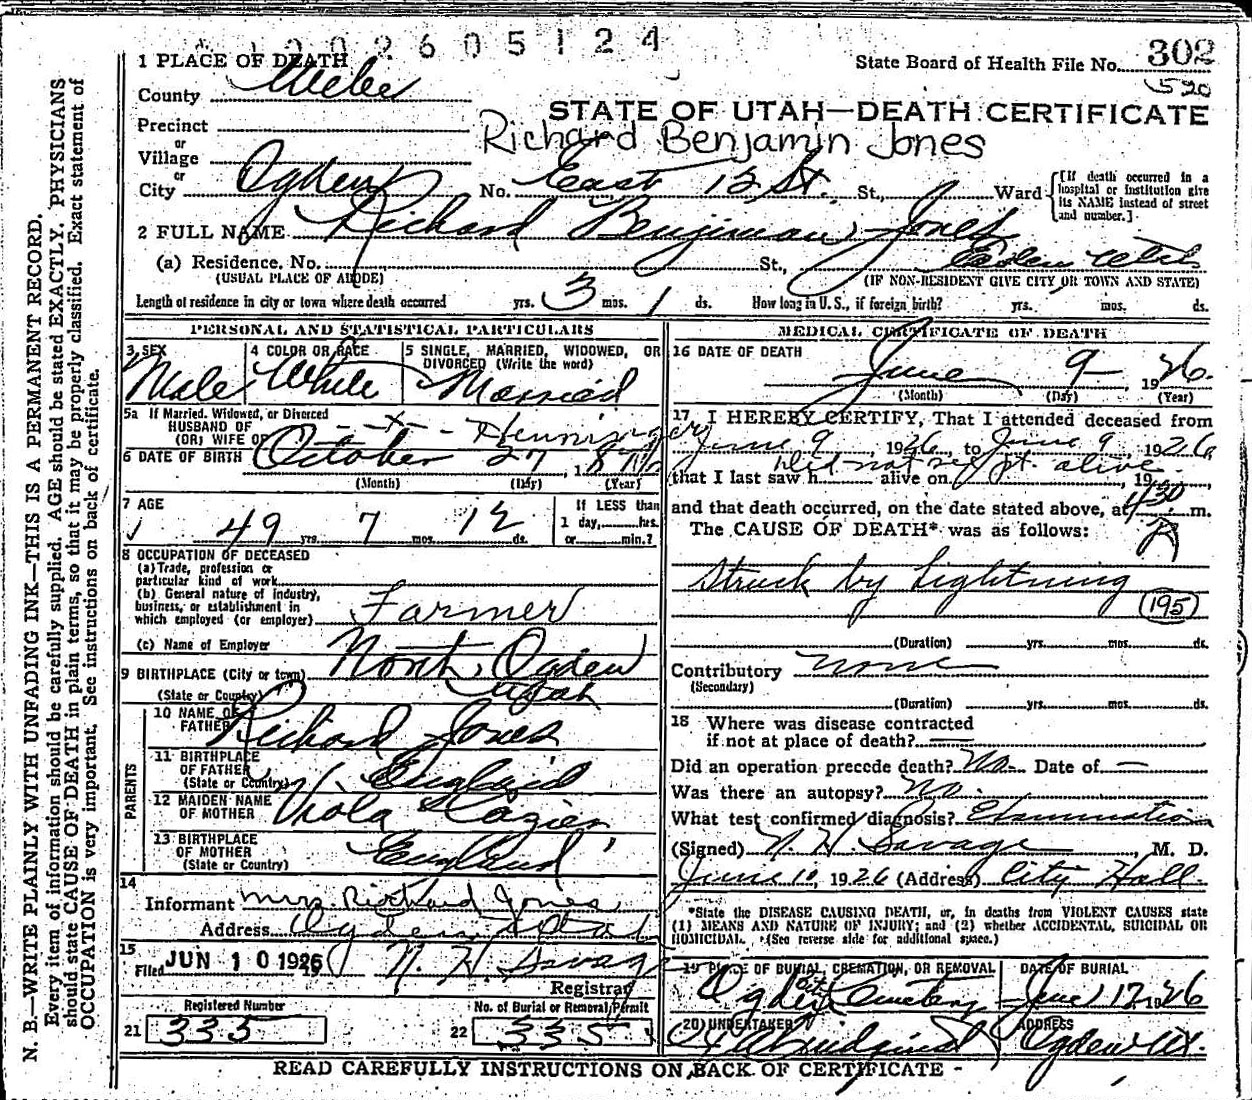 1202605124
1 PLACE OF DEATH
State Board of Health File No. 302
520
County Weber
STATE OF UTAH—DEATH CERTIFICATE
Precinct
or
Richard Benjamin Jones
Village
or
City Ogden No. East 12 St. St., Ward
[If death occurred in a hospital or institution give its NAME instead of street and number.]
2 FULL NAME Richard Benjiman Jones
(a) Residence, No. St., Ogden Utah
(USUAL PLACE OF ABODE) (IF NON-RESIDENT GIVE CITY OR TOWN AND STATE)
Length of residence in city or town where death occurred yrs. 3 mos. 1 ds. How long in U.S., if foreign birth? yrs. mos. ds.
PERSONAL AND STATISTICAL PARTICULARS
3 SEX 4 COLOR OR RACE 5 SINGLE, MARRIED, WIDOWED, OR
DIVORCED (Write the word)
Male White Married
5a If Married, Widowed, or Divorced
HUSBAND OF
(OR) WIFE OF - - x - - Henninger
6 DATE OF BIRTH October 27, 187
(Month) (Day) (Year)
7 AGE If LESS than
49 yrs. 7 mos. 12 ds. 1 day, hrs.
or min.?
8 OCCUPATION OF DECEASED
(a) Trade, profession or
particular kind of work
(b) General nature of industry,
business, or establishment in
which employed (or employer) Farmer
(c) Name of Employer
9 BIRTHPLACE (City or town) North Ogden
(State or Country) Utah
PARENTS
10 NAME OF
FATHER Richard Jones
11 BIRTHPLACE
OF FATHER
(State or Country) England
12 MAIDEN NAME
OF MOTHER Viola
13 BIRTHPLACE
OF MOTHER
(State or Country) England
14
Informant Mrs. Richard Jones
Address Ogden Utah
15
Filed JUN 10 1926 N. H. Savage
Registrar
Registered Number No. of Burial or Removal Permit
21 335 22 335
MEDICAL CERTIFICATE OF DEATH
16 DATE OF DEATH
June 9 1926.
(Month) (Day) (Year)
17 I HEREBY CERTIFY, That I attended deceased from
June 9, 1926, to June 9, 1926
Did not see pt. alive
that I last saw h alive on , 19 ,
and that death occurred, on the date stated above, at 430 m.
The CAUSE OF DEATH* was as follows: P
Struck by Lightning
195
(Duration) yrs. mos. ds.
Contributory none
(Secondary)
(Duration) yrs. mos. ds.
18 Where was disease contracted
if not at place of death? —
Did an operation precede death? No. Date of —
Was there an autopsy? No.
What test confirmed diagnosis? Examination
(Signed) N. H. Savage, M. D.
June 10, 1926 (Address) City Hall.
*State the DISEASE CAUSING DEATH, or, in deaths from VIOLENT CAUSES state
(1) MEANS AND NATURE OF INJURY; and (2) whether ACCIDENTAL, SUICIDAL OR
HOMICIDAL. (See reverse side for additional space.)
19 PLACE OF BURIAL, CREMATION, OR REMOVAL DATE OF BURIAL
Ogden City Cemetery June 12 1926
20 UNDERTAKER ADDRESS
Ogden Ut.
READ CAREFULLY INSTRUCTIONS ON BACK OF CERTIFICATE
N. B.—WRITE PLAINLY WITH UNFADING INK—THIS IS A PERMANENT RECORD.
Every item of information should be carefully supplied. AGE should be stated EXACTLY. PHYSICIANS
should state CAUSE OF DEATH in plain terms, so that it may be properly classified. Exact statement of
OCCUPATION is very important. See instructions on back of certificate.